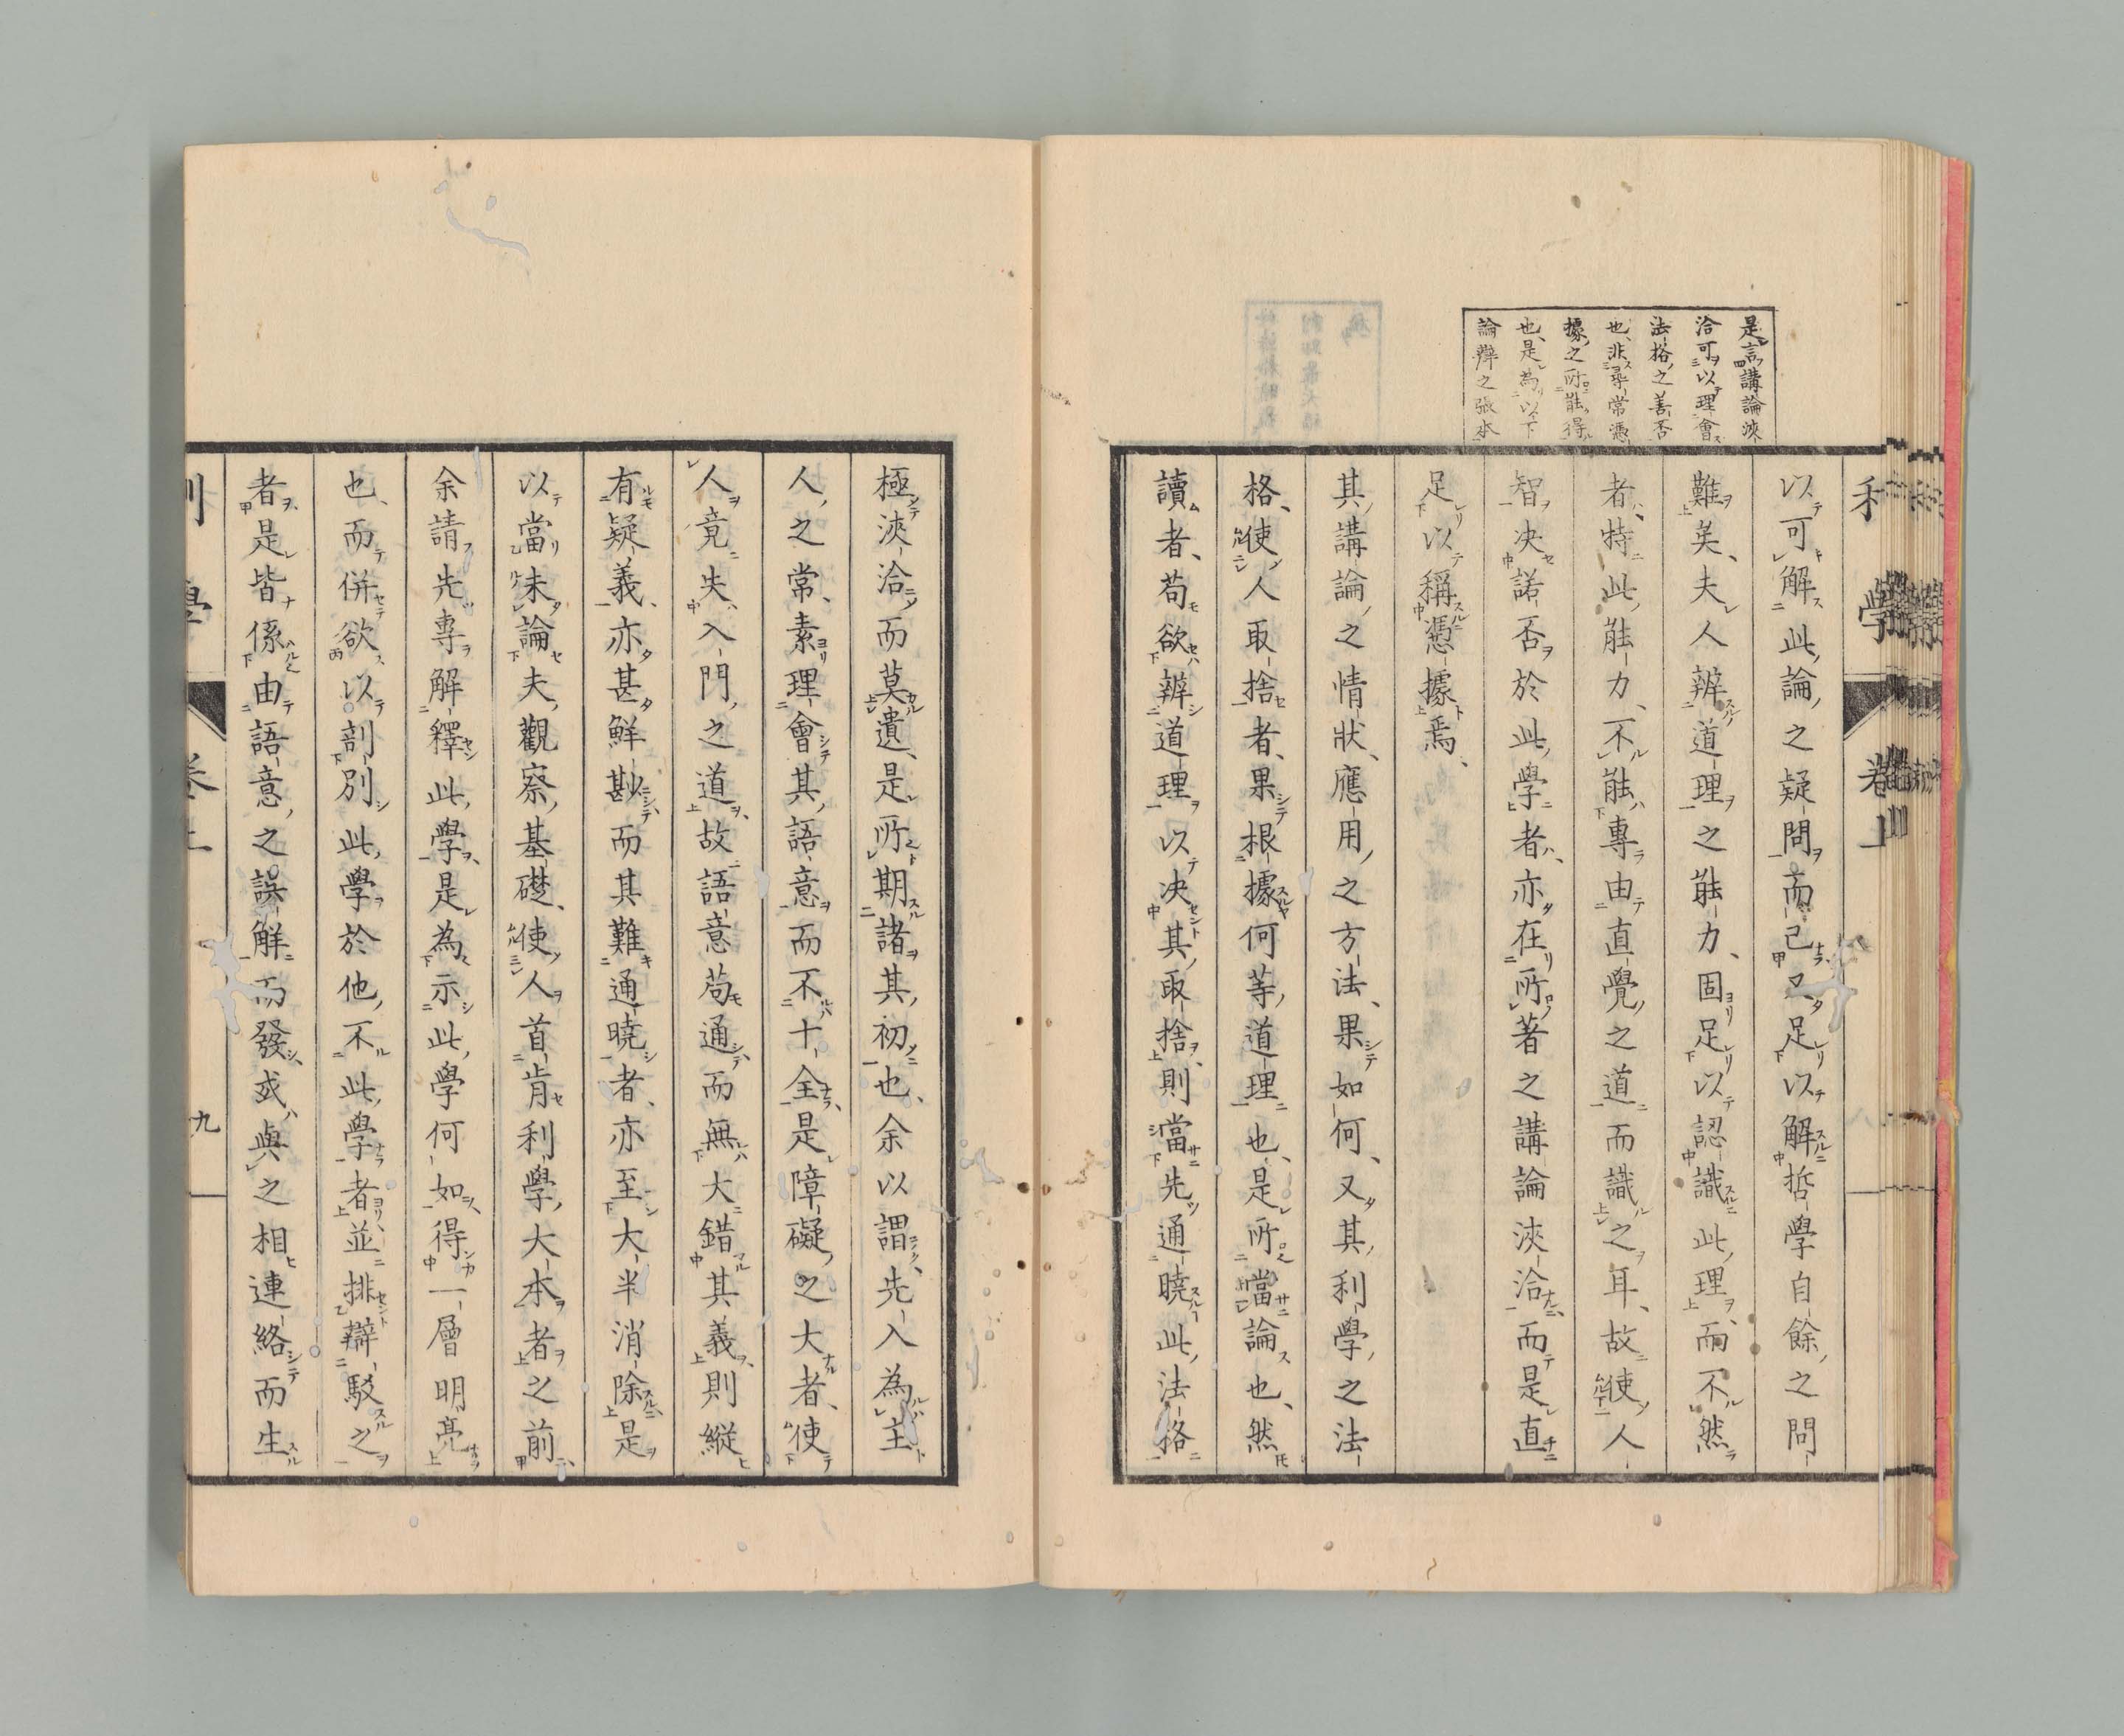 是言講論浹
洽可以理會
法格之善否
也、非尋常憑
據之所能得
也、是為以下
論辨之張本
以可解此論之疑問而已又足以解哲學自餘之問
難矣、夫人辨道理之能力、固足以認識此理、而不然
者、特此能力、不能專由直覺之道而識之耳、故使人
智決諾否於此學者、亦在所著之講論浹洽、而是直
足以稱憑據焉、
其講論之情狀、應用之方法、果如何、又其利學之法
格、使人取捨者、果根據何等道理也、是所當論也、然
讀者、苟欲辨道理以決其取捨、則當先通曉此法格
利學 卷上
極浹洽而莫遺、是所期諸其初也、余以謂、先入為主
人之常、素理會其語意而不十全、是障礙之大者、使
人竟失入門之道、故語意苟通、而無大錯其義、則縱
有疑義、亦甚鮮尠、而其難通曉者、亦至大半消除、是
以當未論夫觀察基礎、使人首肯利學大本者之前、
余請先專解釋此學、是為示此學何如、得一層明亮
也、而併欲以剖別此學於他不此學者、並排辯駁之
者、是皆係由語意之誤解而發、或與之相連絡而生
利學 卷上 九